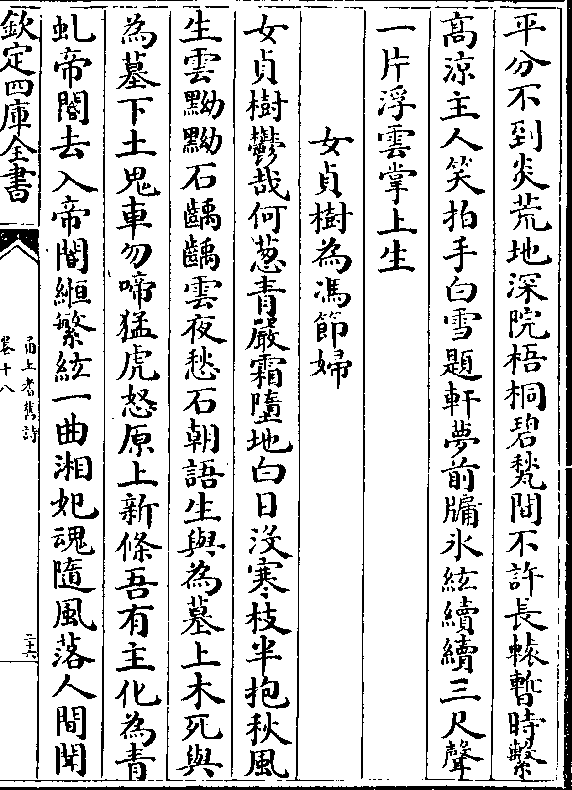 平分不到炎荒地深院梧桐碧甃間不許長轅暫時繫
髙涼主人笑拍手白雪題軒夢前牖氷絃續續三尺聲
一片浮雲掌上生
女貞樹為馮節婦
女貞樹鬱哉何葱青嚴霜墮地白日沒寒枝半抱秋風
生雲黝黝石齲齲雲夜愁石朝語生與為墓上木死與
為墓下土鬼車勿啼猛虎怒原上新條吾有主化為青
虬帝閽去入帝閽緪繁絃一曲湘妃魂隨風落人間聞
欽定四庫全書
甬上耆舊詩
卷十八
二六